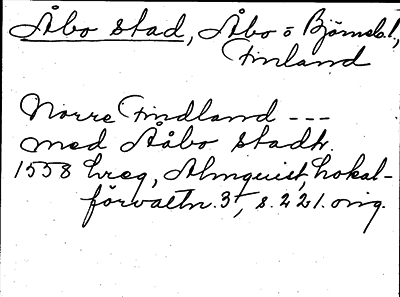 Åbo stad, Åbo o Björneb. l,
Finland
Norre Findland ---
med Ååbo Stadh.
1558 Lreg, Almquist, Lokal-
förvaltn. 3, s. 221. orig.